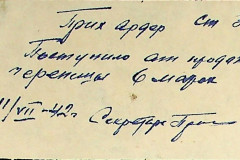 Прих ордер ст
Поступило от продажи
черепицы 6 марок
11/VII-42г Секретарь